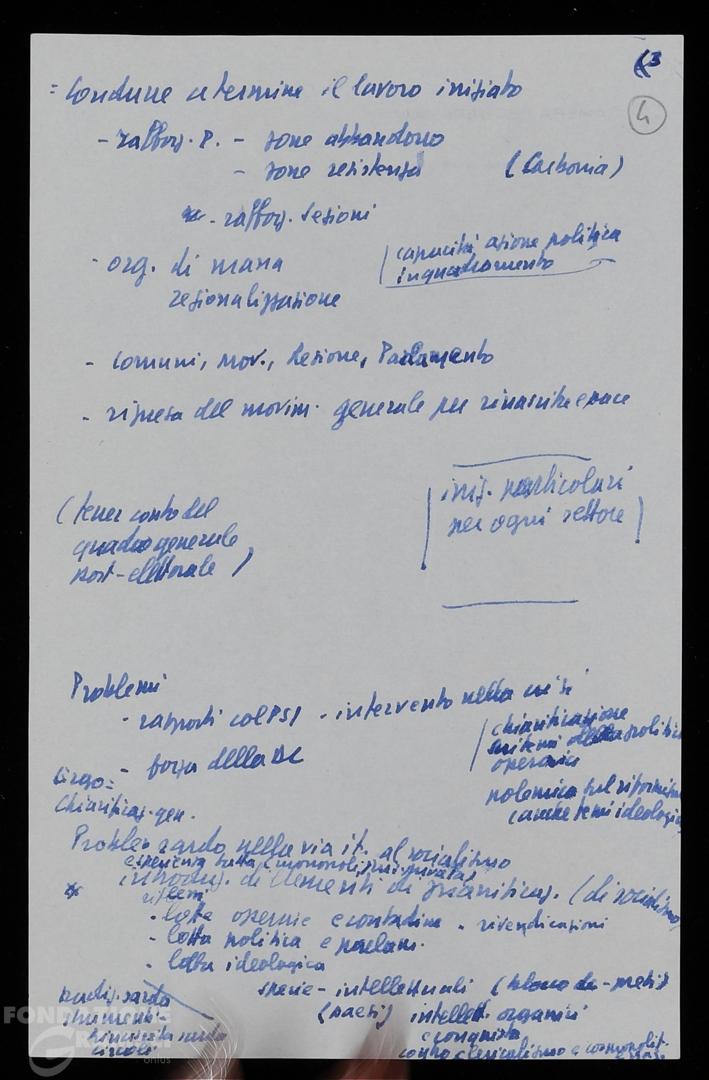 3
4
= Condurre a termine il lavoro iniziato
- rafforz. P. - zone abbandono
- zone resistenza (Carbonia)
- rafforz. Sezioni
- org. di massa
regionalizzazione
capacità azione politica
inquadramento
- Comuni, Prov., Regione, Parlamento
- ripresa del movim. generale per rinascita e pace
(tener conto del
quadro generale
post-elettorale)
iniz. particolari
per ogni settore
Problemi
- rapporti col PSI - intervento nella crisi
- forza della DC
chiarificazione
sui temi della politica
operaia
polemica sul riformismo
(anche temi ideologici
chiarificaz. gen.
Problema sardo nella via it. al socialismo
introduz. di elementi di pianificaz. (di socialismo)
- lotte operaie e contadine - rivendicazioni
- lotta politica e parlam.
- lotta ideologica
specie - intellettuali
(paesi) intellett. organici
e conquista
contro clericalismo e cosmopolit.
strumenti -
rinascita sarda
circoli
FONDAZIONE
GRAMSCI
onlus